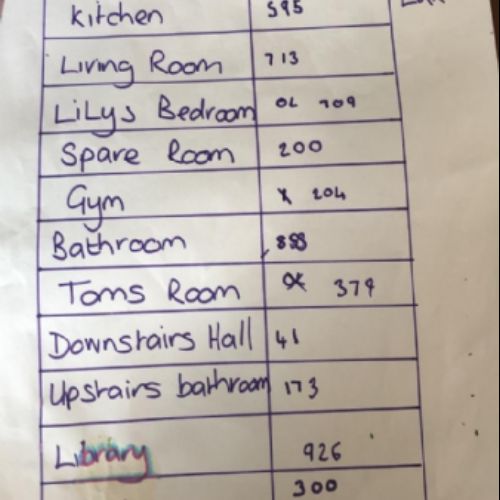 kitchen 595
Living Room 713
LiLys Bedroom 709
Spare Room 200
Gym x 204
Bathroom 888
Toms Room 379
Downstairs Hall 41
Upstairs bathroom 173
Library 926
300